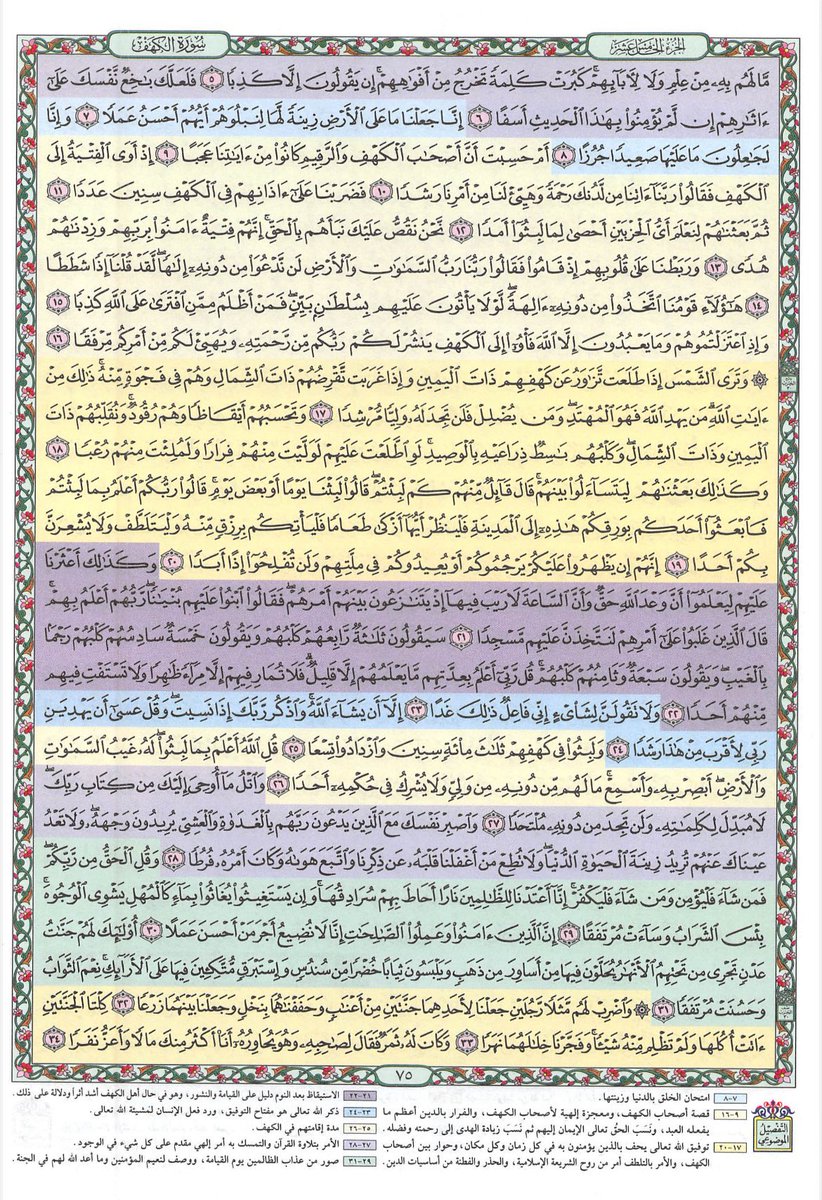 سُورَةُ الكَهْف
الجُزْءُ الخَامِسَ عَشَرَ
مَّا لَهُم بِهِۦ مِنْ عِلْمٍ وَلَا لِأَبَآئِهِمْ ۚ كَبُرَتْ كَلِمَةً تَخْرُجُ مِنْ أَفْوَٰهِهِمْ ۚ إِن يَقُولُونَ إِلَّا كَذِبًا ٥ فَلَعَلَّكَ بَٰخِعٌ نَّفْسَكَ عَلَىٰٓ
ءَاثَٰرِهِمْ إِن لَّمْ يُؤْمِنُوا۟ بِهَٰذَا ٱلْحَدِيثِ أَسَفًا ٦ إِنَّا جَعَلْنَا مَا عَلَى ٱلْأَرْضِ زِينَةً لَّهَا لِنَبْلُوَهُمْ أَيُّهُمْ أَحْسَنُ عَمَلًا ٧ وَإِنَّا
لَجَٰعِلُونَ مَا عَلَيْهَا صَعِيدًا جُرُزًا ٨ أَمْ حَسِبْتَ أَنَّ أَصْحَٰبَ ٱلْكَهْفِ وَٱلرَّقِيمِ كَانُوا۟ مِنْ ءَايَٰتِنَا عَجَبًا ٩ إِذْ أَوَى ٱلْفِتْيَةُ إِلَى
ٱلْكَهْفِ فَقَالُوا۟ رَبَّنَآ ءَاتِنَا مِن لَّدُنكَ رَحْمَةً وَهَيِّئْ لَنَا مِنْ أَمْرِنَا رَشَدًا ١٠ فَضَرَبْنَا عَلَىٰٓ ءَاذَانِهِمْ فِى ٱلْكَهْفِ سِنِينَ عَدَدًا ١١
ثُمَّ بَعَثْنَٰهُمْ لِنَعْلَمَ أَىُّ ٱلْحِزْبَيْنِ أَحْصَىٰ لِمَا لَبِثُوٓا۟ أَمَدًا ١٢ نَّحْنُ نَقُصُّ عَلَيْكَ نَبَأَهُم بِٱلْحَقِّ ۚ إِنَّهُمْ فِتْيَةٌ ءَامَنُوا۟ بِرَبِّهِمْ وَزِدْنَٰهُمْ
هُدًى ١٣ وَرَبَطْنَا عَلَىٰ قُلُوبِهِمْ إِذْ قَامُوا۟ فَقَالُوا۟ رَبُّنَا رَبُّ ٱلسَّمَٰوَٰتِ وَٱلْأَرْضِ لَن نَّدْعُوَا۟ مِن دُونِهِۦٓ إِلَٰهًا ۖ لَّقَدْ قُلْنَآ إِذًا شَطَطًا
١٤ هَٰٓؤُلَآءِ قَوْمُنَا ٱتَّخَذُوا۟ مِن دُونِهِۦٓ ءَالِهَةً ۖ لَّوْلَا يَأْتُونَ عَلَيْهِم بِسُلْطَٰنٍۭ بَيِّنٍ ۖ فَمَنْ أَظْلَمُ مِمَّنِ ٱفْتَرَىٰ عَلَى ٱللَّهِ كَذِبًا ١٥
وَإِذِ ٱعْتَزَلْتُمُوهُمْ وَمَا يَعْبُدُونَ إِلَّا ٱللَّهَ فَأْوُۥٓا۟ إِلَى ٱلْكَهْفِ يَنشُرْ لَكُمْ رَبُّكُم مِّن رَّحْمَتِهِۦ وَيُهَيِّئْ لَكُم مِّنْ أَمْرِكُم مِّرْفَقًا ١٦
۞ وَتَرَى ٱلشَّمْسَ إِذَا طَلَعَت تَّزَٰوَرُ عَن كَهْفِهِمْ ذَاتَ ٱلْيَمِينِ وَإِذَا غَرَبَت تَّقْرِضُهُمْ ذَاتَ ٱلشِّمَالِ وَهُمْ فِى فَجْوَةٍ مِّنْهُ ۚ ذَٰلِكَ مِنْ
ءَايَٰتِ ٱللَّهِ ۗ مَن يَهْدِ ٱللَّهُ فَهُوَ ٱلْمُهْتَدِ ۖ وَمَن يُضْلِلْ فَلَن تَجِدَ لَهُۥ وَلِيًّا مُّرْشِدًا ١٧ وَتَحْسَبُهُمْ أَيْقَاظًا وَهُمْ رُقُودٌ ۚ وَنُقَلِّبُهُمْ ذَاتَ
ٱلْيَمِينِ وَذَاتَ ٱلشِّمَالِ ۖ وَكَلْبُهُم بَٰسِطٌ ذِرَاعَيْهِ بِٱلْوَصِيدِ ۚ لَوِ ٱطَّلَعْتَ عَلَيْهِمْ لَوَلَّيْتَ مِنْهُمْ فِرَارًا وَلَمُلِئْتَ مِنْهُمْ رُعْبًا ١٨
وَكَذَٰلِكَ بَعَثْنَٰهُمْ لِيَتَسَآءَلُوا۟ بَيْنَهُمْ ۚ قَالَ قَآئِلٌ مِّنْهُمْ كَمْ لَبِثْتُمْ ۖ قَالُوا۟ لَبِثْنَا يَوْمًا أَوْ بَعْضَ يَوْمٍ ۚ قَالُوا۟ رَبُّكُمْ أَعْلَمُ بِمَا لَبِثْتُمْ
فَٱبْعَثُوٓا۟ أَحَدَكُم بِوَرِقِكُمْ هَٰذِهِۦٓ إِلَى ٱلْمَدِينَةِ فَلْيَنظُرْ أَيُّهَآ أَزْكَىٰ طَعَامًا فَلْيَأْتِكُم بِرِزْقٍ مِّنْهُ وَلْيَتَلَطَّفْ وَلَا يُشْعِرَنَّ
بِكُمْ أَحَدًا ١٩ إِنَّهُمْ إِن يَظْهَرُوا۟ عَلَيْكُمْ يَرْجُمُوكُمْ أَوْ يُعِيدُوكُمْ فِى مِلَّتِهِمْ وَلَن تُفْلِحُوٓا۟ إِذًا أَبَدًا ٢٠ وَكَذَٰلِكَ أَعْثَرْنَا
عَلَيْهِمْ لِيَعْلَمُوٓا۟ أَنَّ وَعْدَ ٱللَّهِ حَقٌّ وَأَنَّ ٱلسَّاعَةَ لَا رَيْبَ فِيهَآ إِذْ يَتَنَٰزَعُونَ بَيْنَهُمْ أَمْرَهُمْ ۖ فَقَالُوا۟ ٱبْنُوا۟ عَلَيْهِم بُنْيَٰنًا ۖ رَّبُّهُمْ أَعْلَمُ بِهِمْ ۚ
قَالَ ٱلَّذِينَ غَلَبُوا۟ عَلَىٰٓ أَمْرِهِمْ لَنَتَّخِذَنَّ عَلَيْهِم مَّسْجِدًا ٢١ سَيَقُولُونَ ثَلَٰثَةٌ رَّابِعُهُمْ كَلْبُهُمْ وَيَقُولُونَ خَمْسَةٌ سَادِسُهُمْ كَلْبُهُمْ رَجْمًۢا
بِٱلْغَيْبِ ۖ وَيَقُولُونَ سَبْعَةٌ وَثَامِنُهُمْ كَلْبُهُمْ ۚ قُل رَّبِّىٓ أَعْلَمُ بِعِدَّتِهِم مَّا يَعْلَمُهُمْ إِلَّا قَلِيلٌ ۗ فَلَا تُمَارِ فِيهِمْ إِلَّا مِرَآءً ظَٰهِرًا وَلَا تَسْتَفْتِ فِيهِم
مِّنْهُمْ أَحَدًا ٢٢ وَلَا تَقُولَنَّ لِشَا۟ىْءٍ إِنِّى فَاعِلٌ ذَٰلِكَ غَدًا ٢٣ إِلَّآ أَن يَشَآءَ ٱللَّهُ ۚ وَٱذْكُر رَّبَّكَ إِذَا نَسِيتَ وَقُلْ عَسَىٰٓ أَن يَهْدِيَنِ
رَبِّى لِأَقْرَبَ مِنْ هَٰذَا رَشَدًا ٢٤ وَلَبِثُوا۟ فِى كَهْفِهِمْ ثَلَٰثَ مِا۟ئَةٍ سِنِينَ وَٱزْدَادُوا۟ تِسْعًا ٢٥ قُلِ ٱللَّهُ أَعْلَمُ بِمَا لَبِثُوا۟ ۖ لَهُۥ غَيْبُ ٱلسَّمَٰوَٰتِ
وَٱلْأَرْضِ ۖ أَبْصِرْ بِهِۦ وَأَسْمِعْ ۚ مَا لَهُم مِّن دُونِهِۦ مِن وَلِىٍّ وَلَا يُشْرِكُ فِى حُكْمِهِۦٓ أَحَدًا ٢٦ وَٱتْلُ مَآ أُوحِىَ إِلَيْكَ مِن كِتَابِ رَبِّكَ ۖ
لَا مُبَدِّلَ لِكَلِمَٰتِهِۦ وَلَن تَجِدَ مِن دُونِهِۦ مُلْتَحَدًا ٢٧ وَٱصْبِرْ نَفْسَكَ مَعَ ٱلَّذِينَ يَدْعُونَ رَبَّهُم بِٱلْغَدَوٰةِ وَٱلْعَشِىِّ يُرِيدُونَ وَجْهَهُۥ ۖ وَلَا تَعْدُ
عَيْنَاكَ عَنْهُمْ تُرِيدُ زِينَةَ ٱلْحَيَوٰةِ ٱلدُّنْيَا ۖ وَلَا تُطِعْ مَنْ أَغْفَلْنَا قَلْبَهُۥ عَن ذِكْرِنَا وَٱتَّبَعَ هَوَىٰهُ وَكَانَ أَمْرُهُۥ فُرُطًا ٢٨ وَقُلِ ٱلْحَقُّ مِن رَّبِّكُمْ ۖ
فَمَن شَآءَ فَلْيُؤْمِن وَمَن شَآءَ فَلْيَكْفُرْ ۚ إِنَّآ أَعْتَدْنَا لِلظَّٰلِمِينَ نَارًا أَحَاطَ بِهِمْ سُرَادِقُهَا ۚ وَإِن يَسْتَغِيثُوا۟ يُغَاثُوا۟ بِمَآءٍ كَٱلْمُهْلِ يَشْوِى ٱلْوُجُوهَ ۚ
بِئْسَ ٱلشَّرَابُ وَسَآءَتْ مُرْتَفَقًا ٢٩ إِنَّ ٱلَّذِينَ ءَامَنُوا۟ وَعَمِلُوا۟ ٱلصَّٰلِحَٰتِ إِنَّا لَا نُضِيعُ أَجْرَ مَنْ أَحْسَنَ عَمَلًا ٣٠ أُو۟لَٰٓئِكَ لَهُمْ جَنَّٰتُ
عَدْنٍ تَجْرِى مِن تَحْتِهِمُ ٱلْأَنْهَٰرُ يُحَلَّوْنَ فِيهَا مِنْ أَسَاوِرَ مِن ذَهَبٍ وَيَلْبَسُونَ ثِيَابًا خُضْرًا مِّن سُندُسٍ وَإِسْتَبْرَقٍ مُّتَّكِـِٔينَ فِيهَا عَلَى ٱلْأَرَآئِكِ ۚ نِعْمَ ٱلثَّوَابُ
وَحَسُنَتْ مُرْتَفَقًا ٣١ ۞ وَٱضْرِبْ لَهُم مَّثَلًا رَّجُلَيْنِ جَعَلْنَا لِأَحَدِهِمَا جَنَّتَيْنِ مِنْ أَعْنَٰبٍ وَحَفَفْنَٰهُمَا بِنَخْلٍ وَجَعَلْنَا بَيْنَهُمَا زَرْعًا ٣٢ كِلْتَا ٱلْجَنَّتَيْنِ
ءَاتَتْ أُكُلَهَا وَلَمْ تَظْلِم مِّنْهُ شَيْـًٔا ۚ وَفَجَّرْنَا خِلَٰلَهُمَا نَهَرًا ٣٣ وَكَانَ لَهُۥ ثَمَرٌ فَقَالَ لِصَٰحِبِهِۦ وَهُوَ يُحَاوِرُهُۥٓ أَنَا۠ أَكْثَرُ مِنكَ مَالًا وَأَعَزُّ نَفَرًا ٣٤
٧٥
التفصيل الموضوعي
٧-٨ امتحان الخلق بالدنيا وزينتها.
٩-١٦ قصة أصحاب الكهف، ومعجزة إلهية لأصحاب الكهف، والفرار بالدين أعظم ما
يفعله العبد، ونَسَبَ الحقُّ تعالى الإيمان إليهم ثم نَسَبَ زيادة الهدى إلى رحمته وفضله.
١٧-٢٠ توفيق الله تعالى يحف بالذين يؤمنون به في كل زمان وكل مكان، وحوار بين أصحاب
الكهف، والأمر بالتلطف أمر من روح الشريعة الإسلامية، والحذر والفطنة من أساسيات الدين.
٢١-٢٢ الاستيقاظ بعد النوم دليل على القيامة والنشور، وهو في حال أهل الكهف أشد أثراً ودلالة على ذلك.
٢٣-٢٤ ذكر الله تعالى هو مفتاح التوفيق، ورد فعل الإنسان لمشيئة الله تعالى.
٢٥-٢٦ مدة إقامتهم في الكهف.
٢٧-٢٨ الأمر بتلاوة القرآن والتمسك به أمر إلهي مقدم على كل شيء في الوجود.
٢٩-٣١ صور من عذاب الظالمين يوم القيامة، ووصف لنعيم المؤمنين وما أعد الله لهم في الجنة.